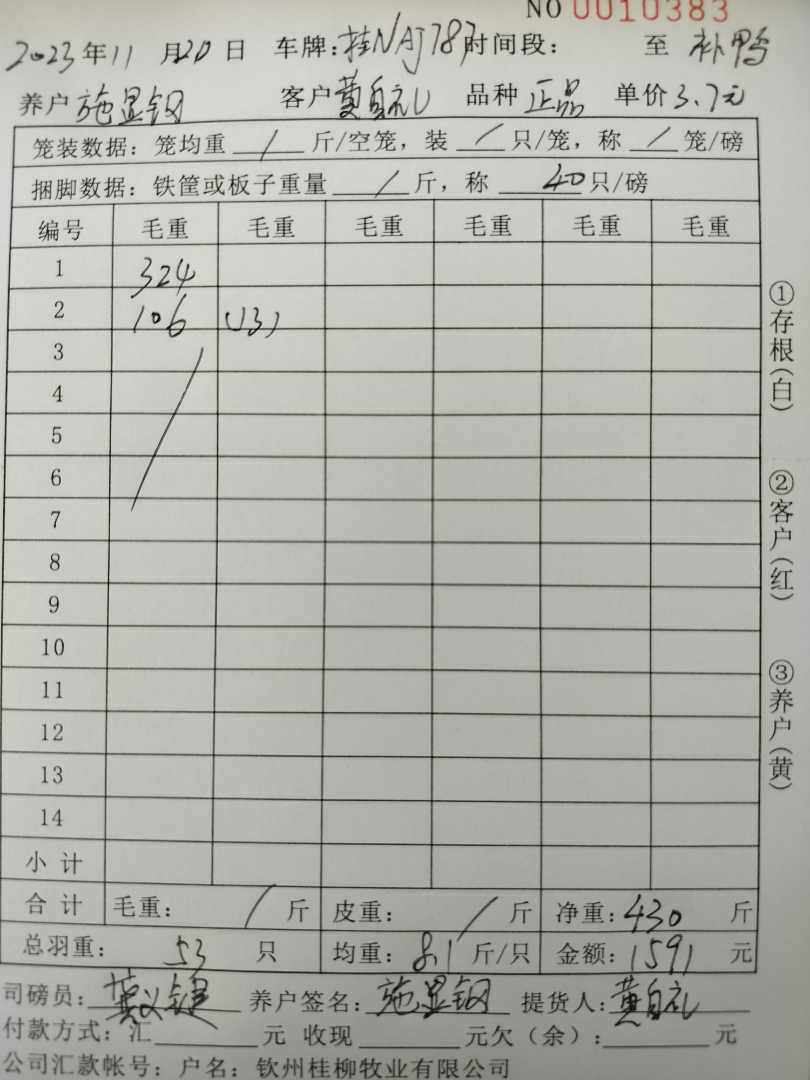 NO 0010383
2023年11月20日 车牌:桂NAJ787时间段: 至 补鸭
养户 施显钢 客户 黄自礼 品种 正品 单价 3.7元
笼装数据: 笼均重 / 斤/空笼, 装 / 只/笼, 称 / 笼/磅
捆脚数据: 铁筐或板子重量 / 斤, 称 40只/磅
编号 毛重 毛重 毛重 毛重 毛重 毛重
1 324
2 106 (13)
3
4
5
6
7
8
9
10
11
12
13
14
小计
合计 毛重: / 斤 皮重: / 斤 净重: 430 斤
总羽重: 53 只 均重: 8.1 斤/只 金额: 1591 元
司磅员: 养户签名: 施显钢 提货人: 黄自礼
付款方式: 汇 元 收现 元欠(余): 元
公司汇款帐号: 户名: 钦州桂柳牧业有限公司
①存根(白)
②客户(红)
③养户(黄)